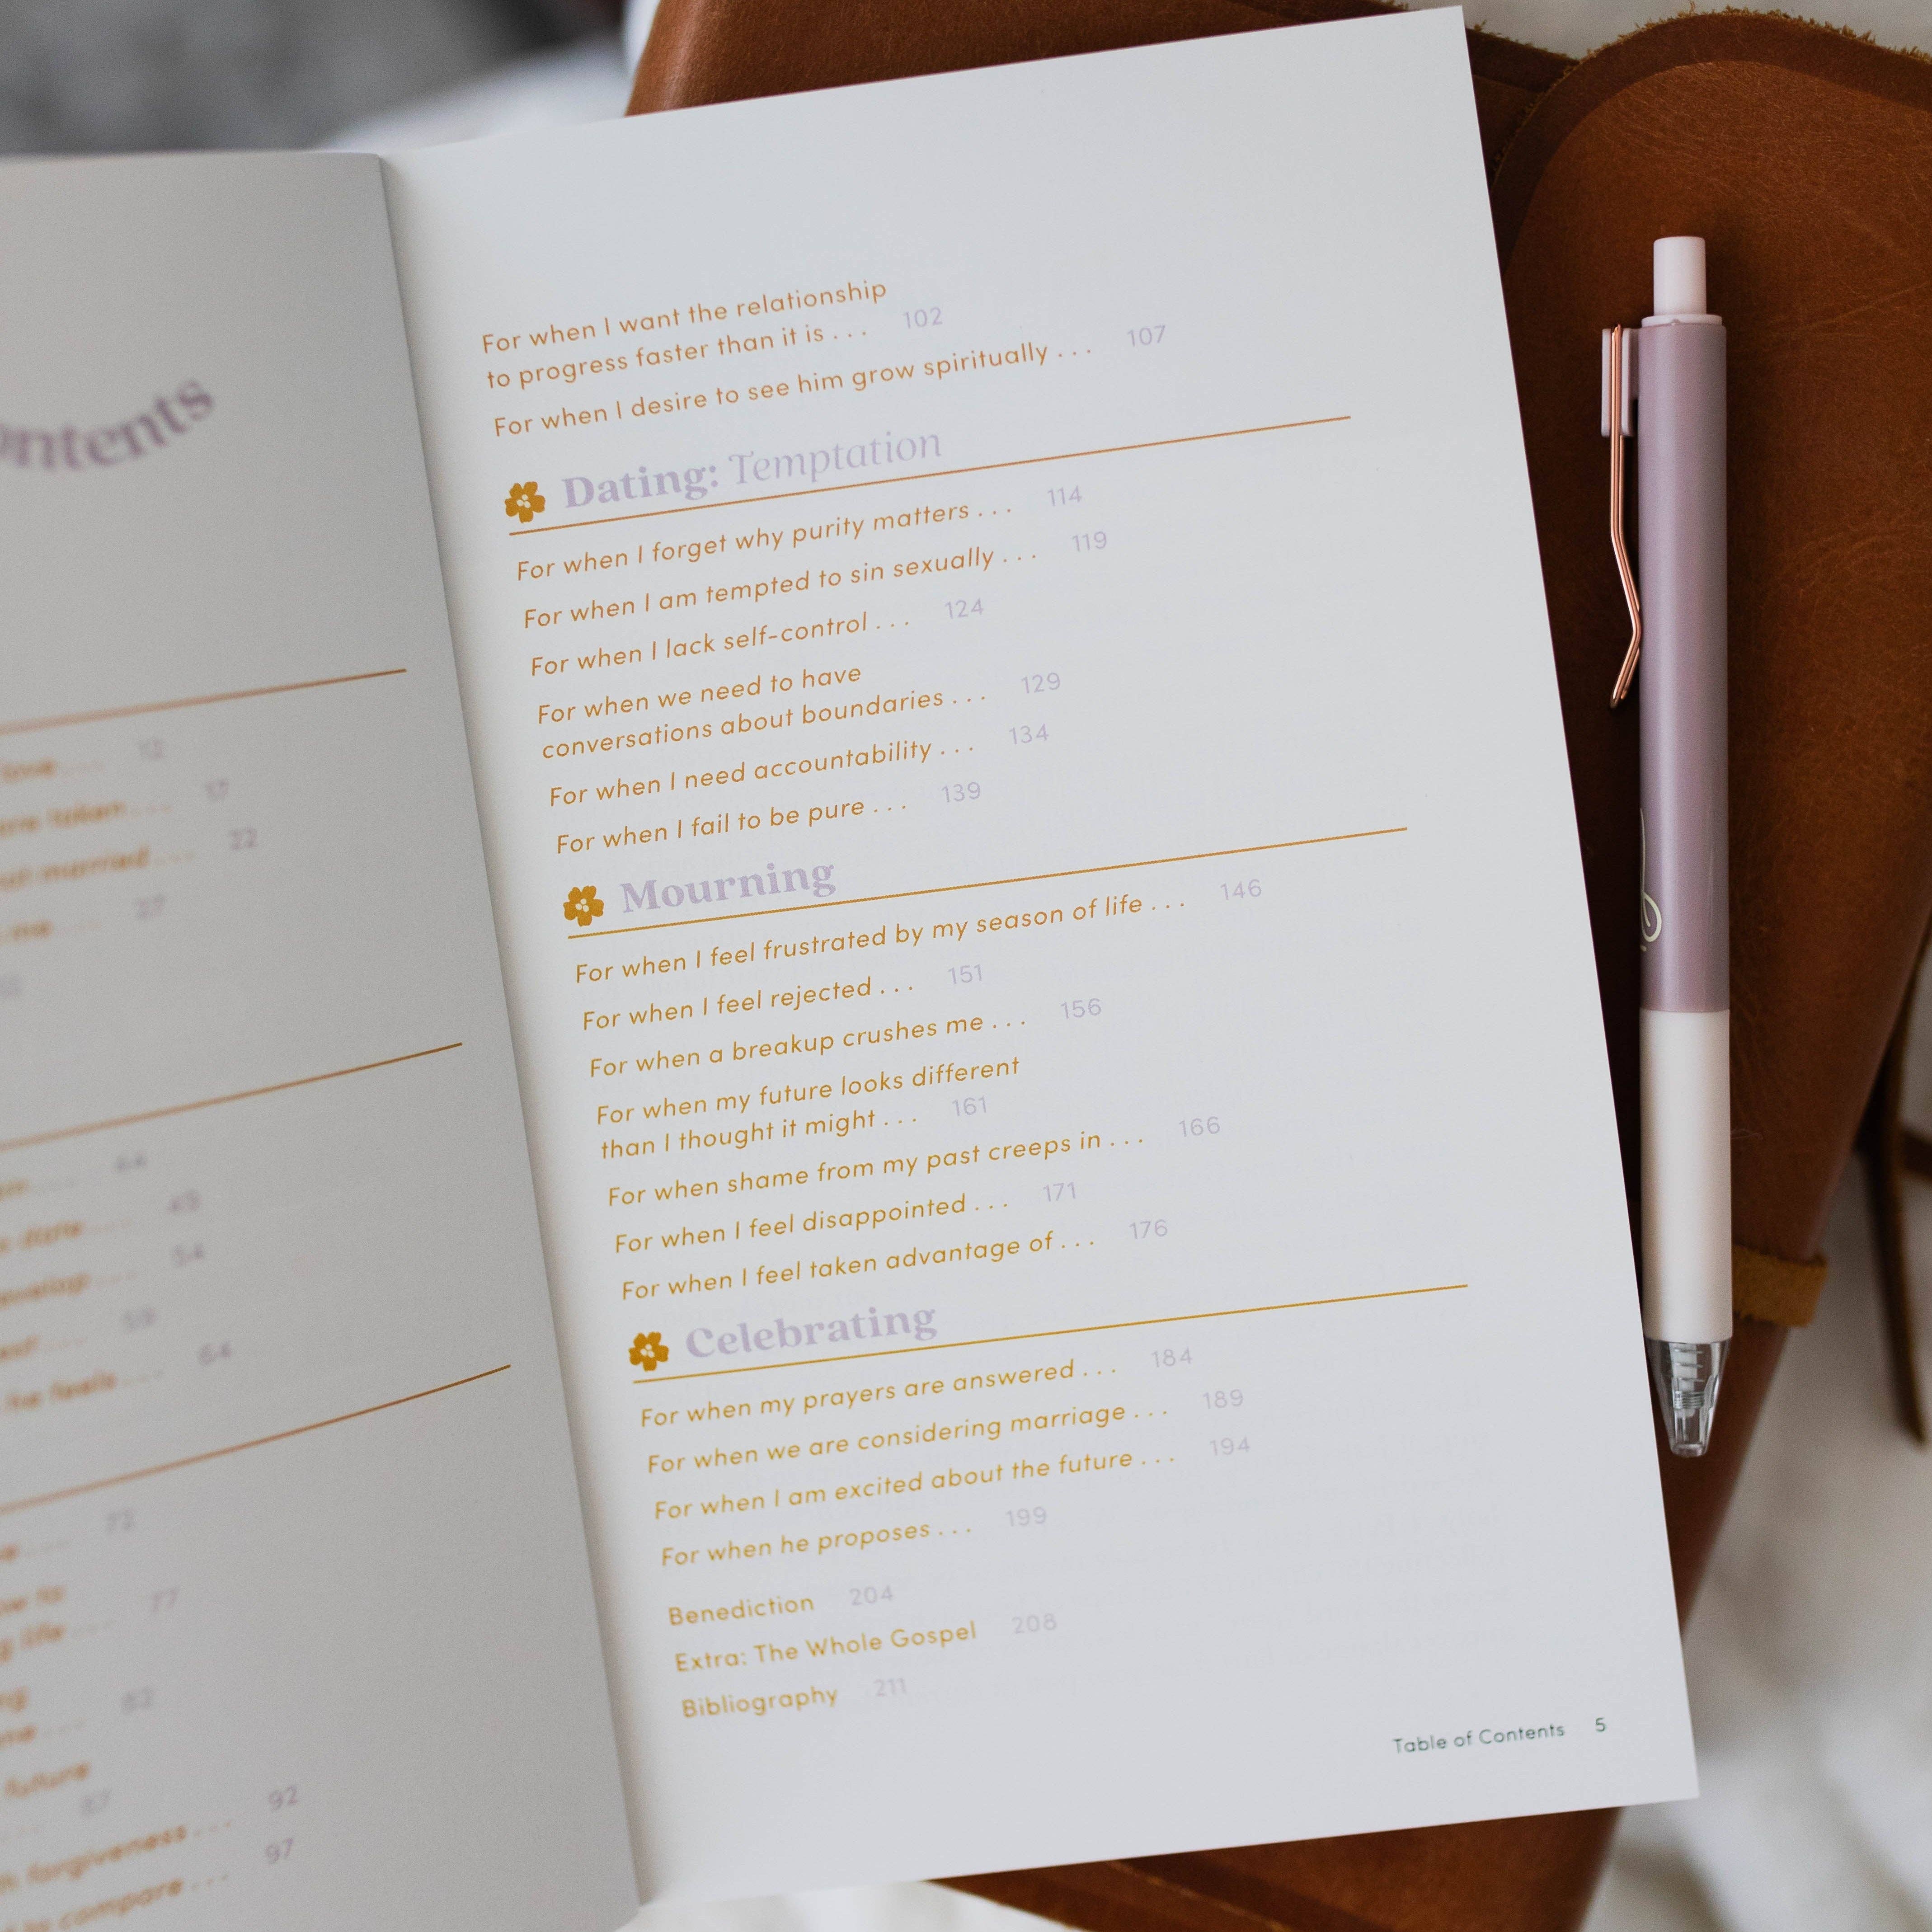 love . . . . 12
taken . . . 17
married . . . 22
me . . . 27
date . . . . 49
54
59
he feels . . . . 64
72
77
life . . . .
82
future
87
forgiveness . . . 92
compare . . . 97
For when I want the relationship
to progress faster than it is . . . 102
For when I desire to see him grow spiritually . . . 107
Dating: Temptation
For when I forget why purity matters . . . 114
For when I am tempted to sin sexually . . . 119
For when I lack self-control . . . 124
For when we need to have
conversations about boundaries . . . 129
For when I need accountability . . . 134
For when I fail to be pure . . . 139
Mourning
For when I feel frustrated by my season of life . . . 146
For when I feel rejected . . . 151
For when a breakup crushes me . . . 156
For when my future looks different
than I thought it might . . . 161
For when shame from my past creeps in . . . 166
For when I feel disappointed . . . 171
For when I feel taken advantage of . . . 176
Celebrating
For when my prayers are answered . . . 184
For when we are considering marriage . . . 189
For when I am excited about the future . . . 194
For when he proposes . . . 199
Benediction 204
Extra: The Whole Gospel 208
Bibliography 211
Table of Contents 5